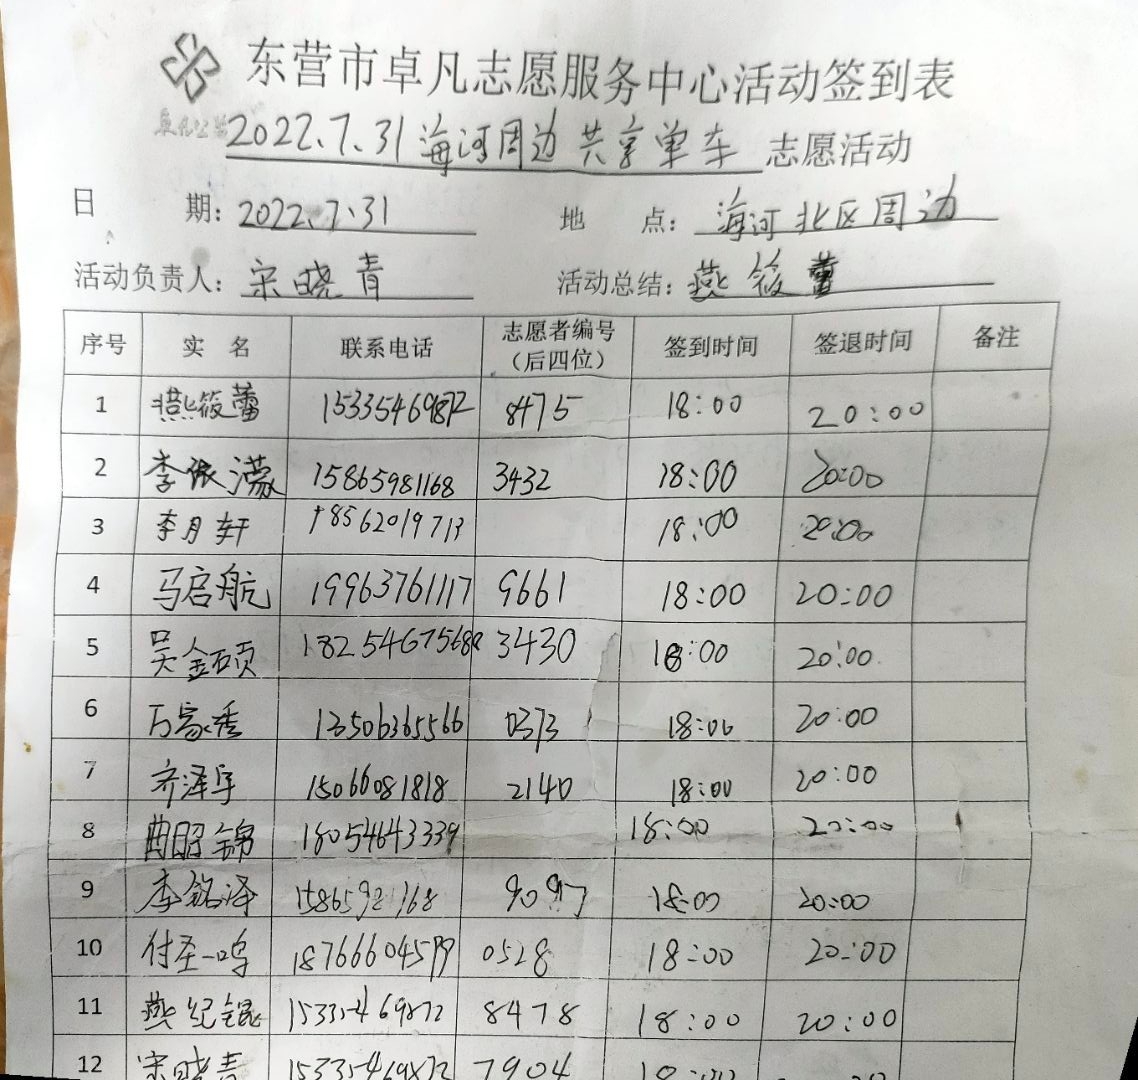 东营市卓凡志愿服务中心活动签到表
卓凡公益
2022.7.31海河周边共享单车 志愿活动
日 期：2022.7.31 地 点：海河北区周边
活动负责人：宋晓青 活动总结：燕筱蕾
序号 实 名 联系电话 志愿者编号（后四位） 签到时间 签退时间 备注
1 燕筱蕾 15335469872 8475 18:00 20:00
2 李依濛 15865981168 3432 18:00 20:00
3 李月轩 18562019713 18:00 20:00
4 马启航 19963761117 9661 18:00 20:00
5 吴金硕 3430 18:00 20:00
6 万家秀 13506365566 0373 18:00 20:00
7 齐泽宇 15066081818 2140 18:00 20:00
8 曲昭锦 18054643339 18:00 20:00
9 李铭泽 15865981168 9097 18:00 20:00
10 付圣一鸣 0528 18:00 20:00
11 燕纪锟 15335469872 8478 18:00 20:00
12 宋晓青 15335469872 7904 18:00